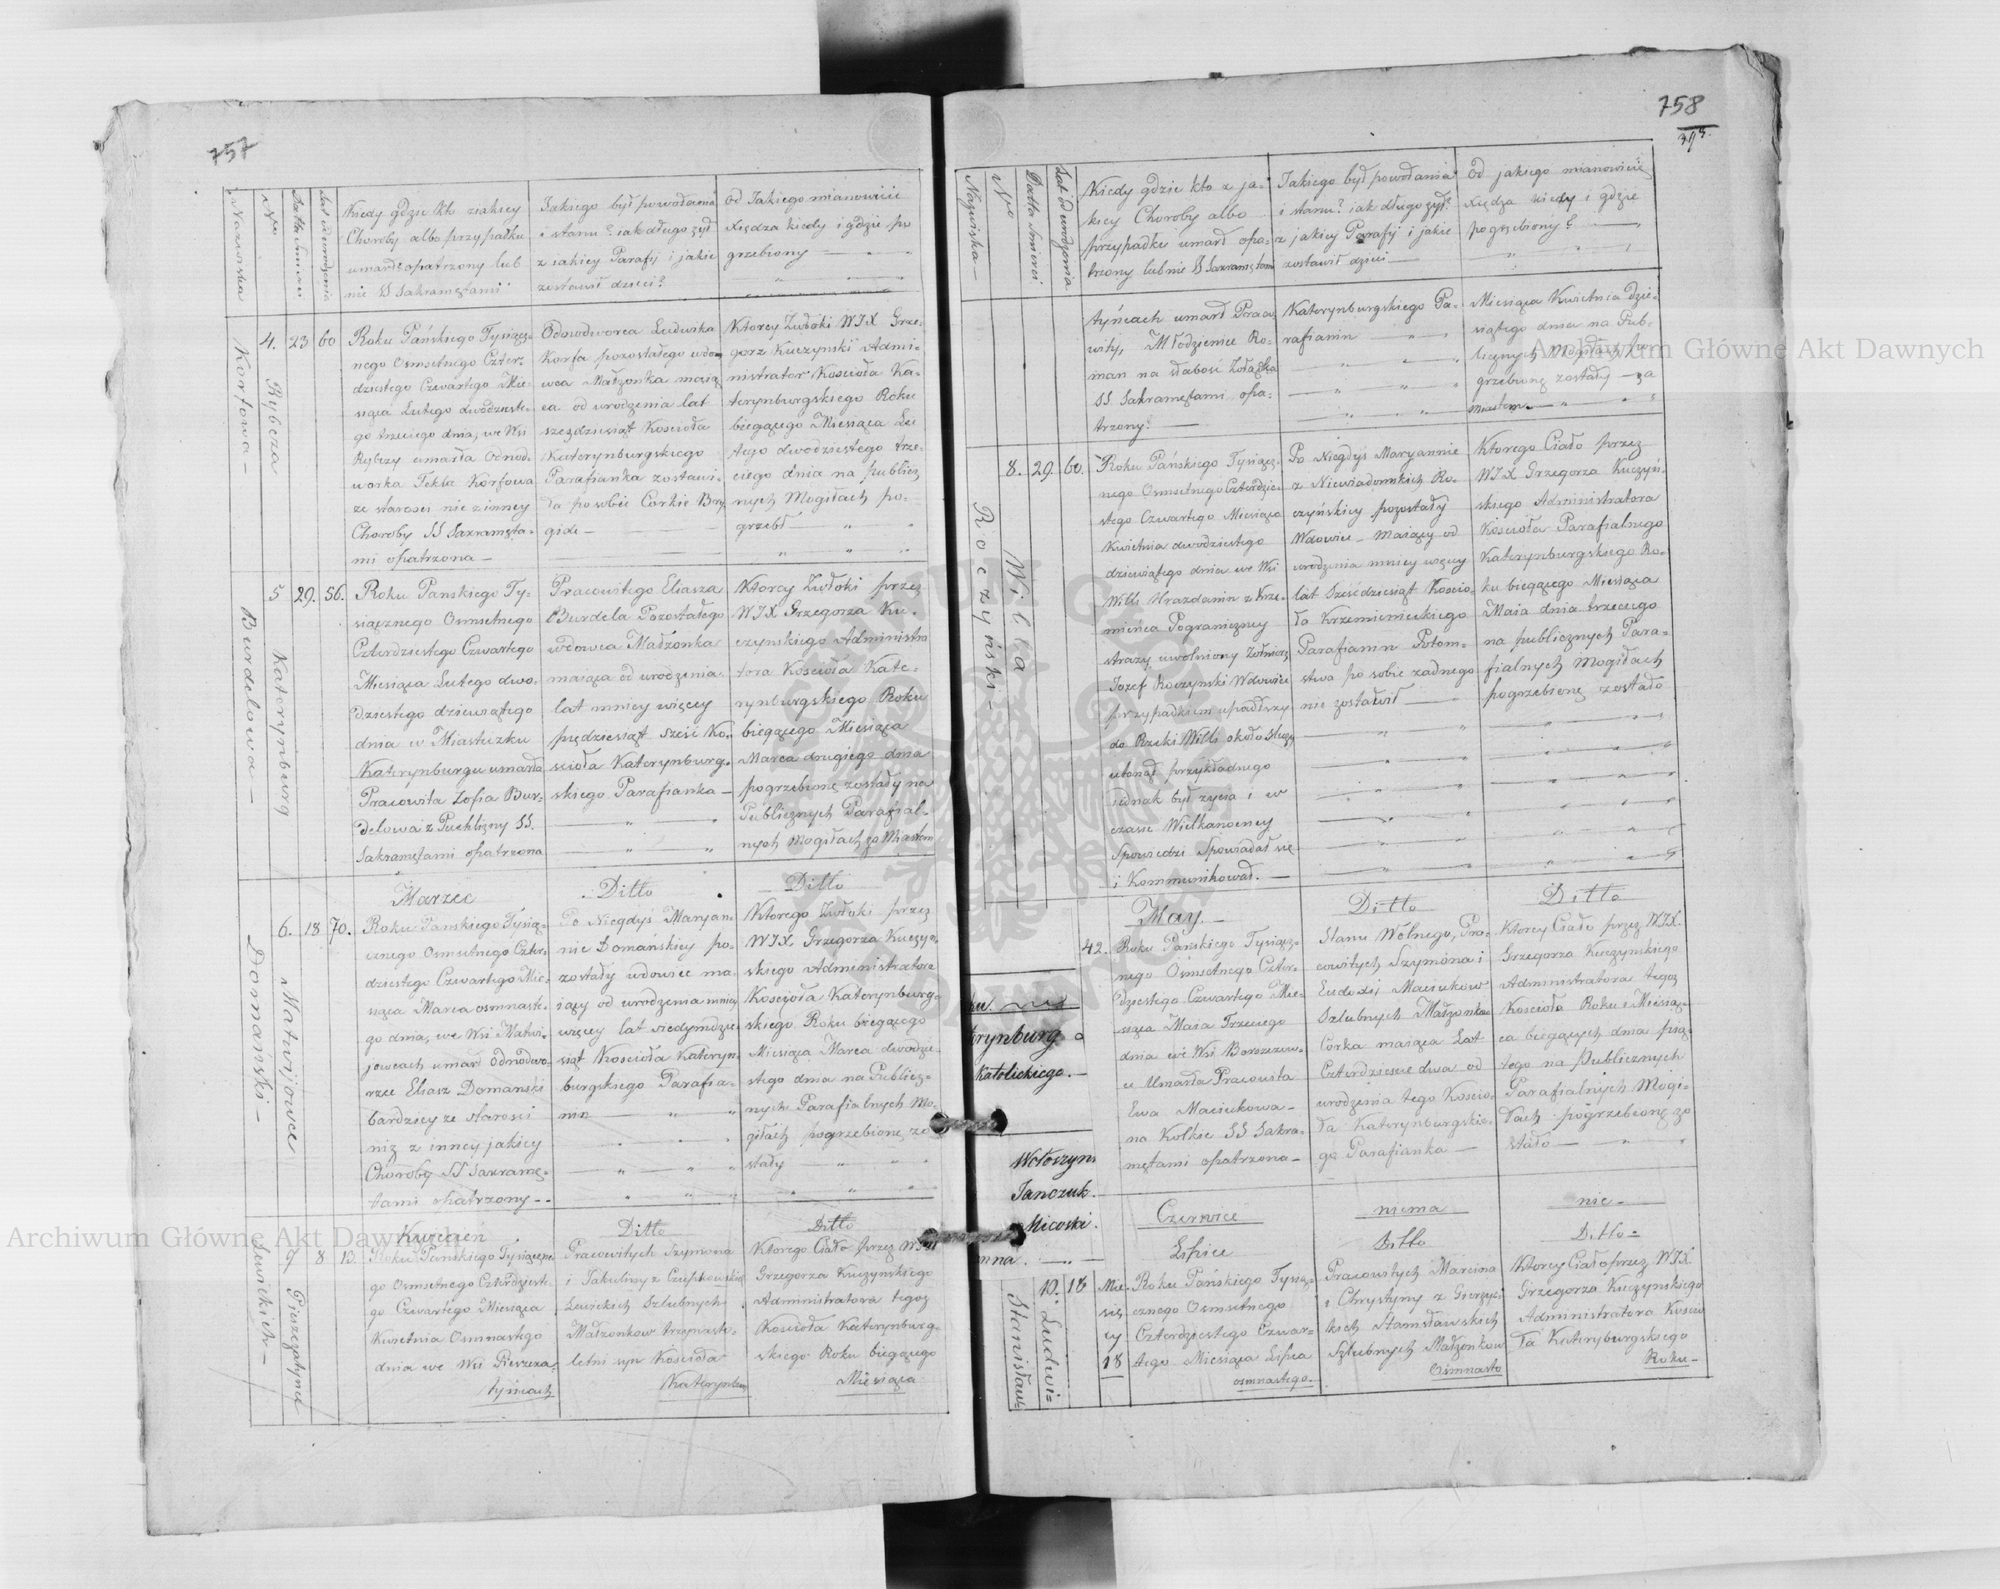 757
Nazwiska
No
Datta Smierci
Lat od urodzenia
Kiedy gdzie kto z iakiey
Choroby albo przypadku
umarł? opatrzony lub
nie SS Sakramętami
Iakiego był powołania
i stanu? iak długo żył
z iakiey Parafij i jakie
zostawił dzieci?
Od Iakiego mianowicie
Xiędza kiedy i gdzie po
grzebiony
Korfowa
Rybcza
4.
23
60
Roku Pańskiego Tysiącz
nego Osmsetnego Czter-
dziestego Czwartego Mie-
siąca Lutego dwódzieste-
go trzeciego dnia, we Wsi
Rybczy umarła Odnod-
worka Tekla Korfowa
ze starosci nie z inney
Choroby SS Sakramęta-
mi opatrzona
Odnodworca Ludwika
Korfa pozostałego wdow
wca Małżonka maiąc
ca od urodzenia lat
szesdziesiąt Kościoła
Katerynburgskiego
Parafianka zostawi-
ła po sobie Corkie Bry
gide
Ktorey Zwłoki WJX Grze-
gorz Kuczynski Admi-
nistrator Kościoła Ka-
terynburgskiego Roku
bieżącego Miesiąca Lu
tego dwodziestego trze-
ciego dnia na publicz
nych Mogiłach po-
grzebł
Burdelowa
Katerynburg
5
29.
56.
Roku Panskiego Ty-
siącznego Osmsetnego
Czterdziestego Czwartego
Miesiąca Lutego dwo-
dziestego dziewiątego
dnia w Miasteczku
Katerynburgu umarła
Pracowita Zofia Bur-
delowa z Puchlizny SS.
Sakramętami opatrzona
Pracowitego Eliasza
Burdela Pozostałego
wdowca Małżonka
maiąca od urodzenia
lat mniey więcey
pięćdziesiąt sześć Ko-
scioła Katerynburg-
skiego Parafianka
Ktorey Zwłoki przez
WJX Grzegorza Ku-
czynskiego Administra
tora Kościoła Kate-
rynburgskiego Roku
bieżącego Miesiąca
Marca drugiego dnia
pogrzebione zostały na
Publicznych Parafial-
nych Mogiłach za Miastem
Marzec
Ditto
Ditto
Domański
Matwijowce
6.
18
70.
Roku Panskiego Tysią-
cznego Osmsetnego Czter-
dziestego Czwartego Mie-
siąca Marca osmnaste-
go dnia, we Wsi Matwi-
jowcach umarł Odnodwo-
rzec Eliasz Domanski
bardziey ze starosci
niż z inney jakiey
Choroby SS Sakramę-
tami opatrzony
Po Niegdyś Maryan-
nie Domańskiey po-
zostały wdowiec ma-
iący od urodzenia mniey
więcey lat siedymdzie
siąt Kościoła Kateryn-
burgskiego Parafia-
nin
Ktorego Zwłoki przez
WJX Grzegorza Kuczyn-
skiego Administratora
Kościoła Katerynburg-
skiego Roku bieżącego
Miesiąca Marca dwodzie-
stego dnia na Publicz-
nych Parafialnych Mo-
giłach pogrzebione zo
stały
Kwiecień
Ditto
Ditto
Lewickich
Pieszczatyńce
7
8
13.
Roku Panskiego Tysiączne
go Osmsetnego Czterdzieste-
go Czwartego Miesiąca
Kwietnia Osmnastego
dnia we Wsi Pieszcza-
tyńcach
Pracowitych Szymona
i Jakuliny z Czepkowskich
Lewickich Szlubnych
Małżonkow trzynasto-
letni syn Kościoła
Katerynbur
Ktorego Ciało przez WJX
Grzegorza Kuczynskiego
Administratora tegoż
Kościoła Katerynburg-
skiego Roku bieżącego
Miesiąca
758
395.
Nazwiska
No
Datta Smierci
Lat od urodzenia
Kiedy gdzie kto z ja-
kiey Choroby albo
przypadku umarł opa-
trzony lub nie SS Sakramętami
Iakiego był powołania
i stanu? iak długo żył?
z jakiey Parafij i jakie
zostawił dzieci
Od jakiego mianowicie
Xiędza kiedy i gdzie
pogrzebiony?
tyńcach umarł Praco
wity, Młodzieniec Ro-
man na słabość Żołądka
SS Sakramętami opa-
trzony
Katerynburgskiego Pa-
rafianin
Miesiąca Kwietnia Dzie-
siątego dnia na Pub-
licznych Mogiłach po
grzebione zostały za
Miastem
Roczyński
Willia
8.
29.
60.
Roku Pańskiego Tysiącz-
nego Osmsetnego Czterdzie-
stego Czwartego Miesiąca
Kwietnia dwodziestego
dziewiątego dnia we Wsi
Willi Urazdanin z Krze-
mieńca Pograniczney
straży uwolniony żołnierz
Jozef Roczynski Wdowiec
przypadkiem upadłszy
do Rzeki Willi około Sluzy
utonął przykładnego
iednak był życia i w
czasie Wielkanocney
Spowiedzi Spowiadał się
i Kommunikował.
Po Niegdyś Maryannie
z Niewiadomskich Ro-
czyńskiey pozostały
Wdowiec maiący od
urodzenia mniey więcey
lat Sześćdziesiąt Koscio-
ła Krzemienieckiego
Parafianin Potom-
stwa po sobie żadnego
nie zostawił
Ktorego Ciało przez
WJX Grzegorza Kuczyń-
skiego Administratora
Kościoła Parafialnego
Katerynburgskiego Ro-
ku bieżącego Miesiąca
Maia dnia trzeciego
na publicznych Para-
fialnych Mogiłach
pogrzebione zostało
May
Ditto
Ditto
42.
Roku Pańskiego Tysiącz-
nego Osmsetnego Czter-
dziestego Czwartego Mie-
siąca Maia Trzeciego
dnia we Wsi Borszczow-
ce Umarła Pracowita
Ewa Maciukowa
na Kolkie SS Sakra-
mętami opatrzona
Stanu Wolnego, Pra-
cowitych Szymona i
Eudoxij Maciukow
Szlubnych Małżonkow
Corka maiąca Lat
Czterdziescie dwa od
urodzenia tego Koscio-
ła Katerynburgskie-
go Parafianka
Ktorey Ciało przez WJX.
Grzegorza Kuczynskiego
Administratora tegoż
Kościoła Roku i Miesią-
ca bieżących dnia pią-
tego na Publicznych
Parafialnych Mogi-
łach pogrzebione zo
stało
rynburg
Katolickiego.
Wołoszyn
Janczuk.
Micoski.
nna.
Czerwiec
niema
nic
Lipiec
Ditto
Ditto
Stanisławs
Ludwi=
10.
18
Mie
się
cy
18
Roku Pańskiego Tysią-
cznego Osmsetnego
Czterdziestego Czwar-
tego Miesiąca Lipca
osmnastego.
Pracowitych Marcina
i Chrystyny z Gierzyc-
kich Stanisławskich
Szlubnych Małżonkow
Osmnasto
Ktorey Ciało przez WJX
Grzegorza Kuczynskiego
Administratora Koscio
ła Kateryburgskiego
Roku
Archiwum Główne Akt Dawnych
Archiwum Główne Akt Dawnych